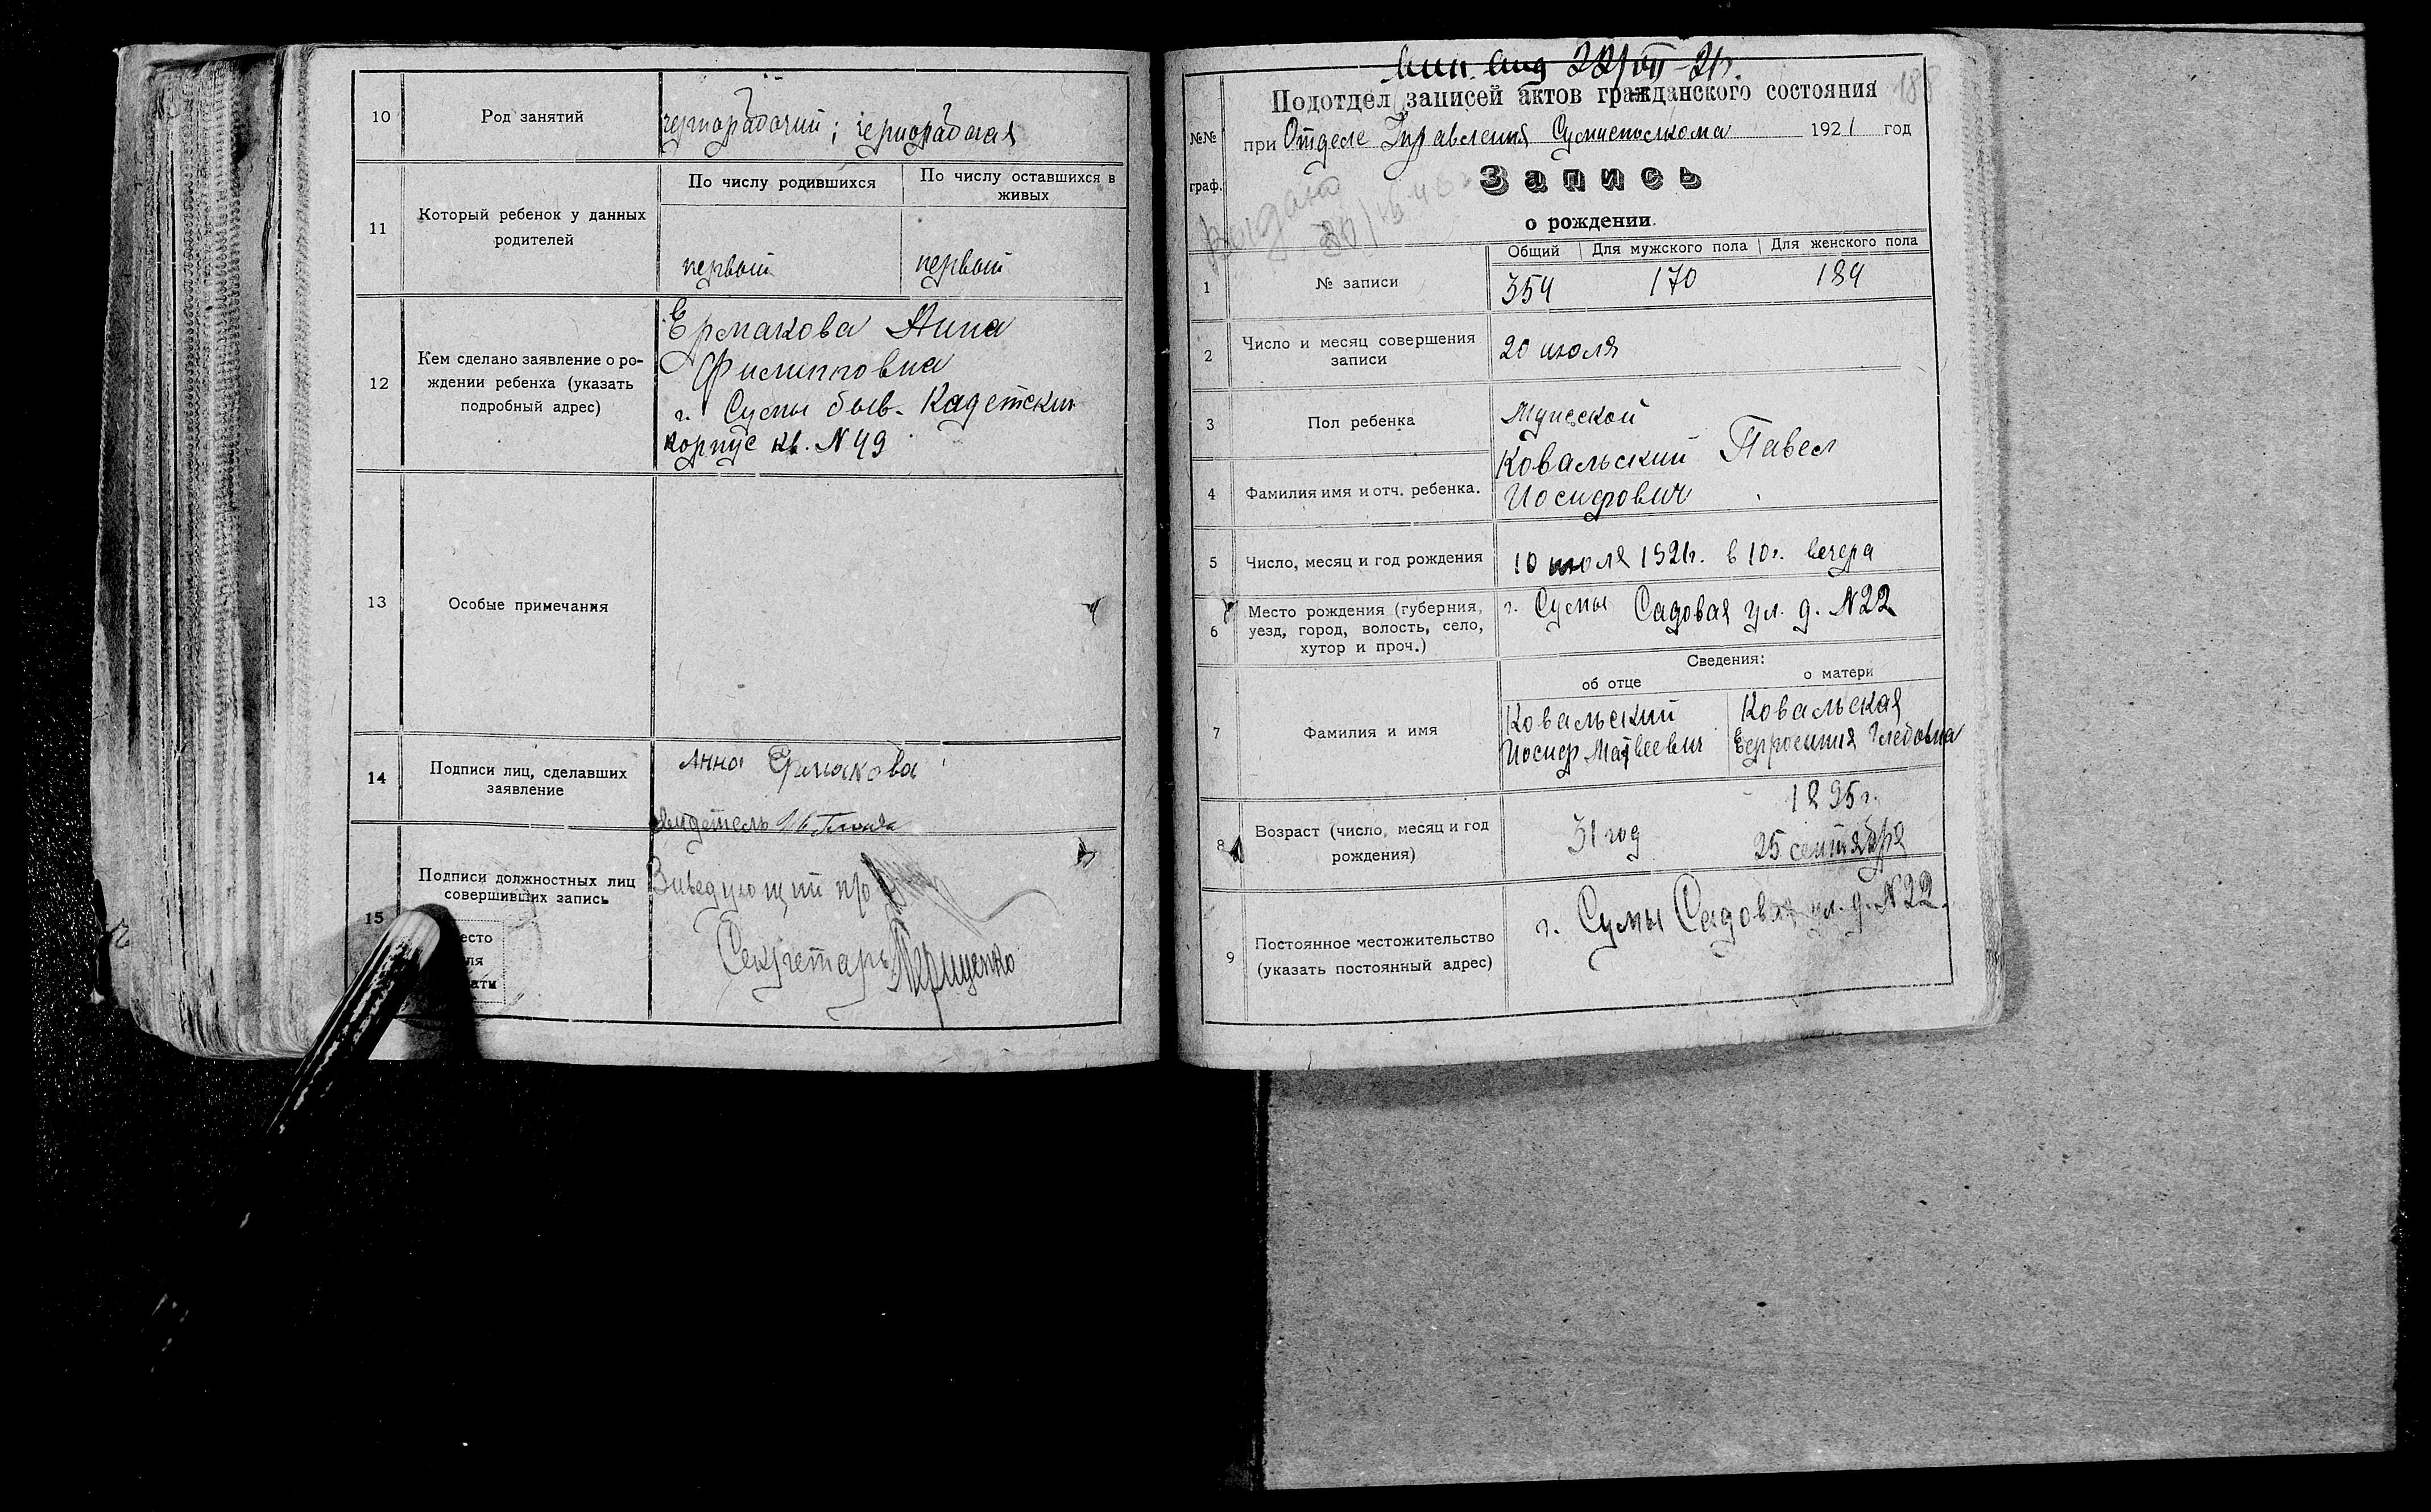 10
Род занятий
чернорабочий; чернорабочая
11
Который ребенок у данных
родителей
По числу родившихся
По числу оставшихся в
живых
первый
первый
12
Кем сделано заявление о ро-
ждении ребенка (указать
подробный адрес)
Ермакова Анна
Филипповна
г. Сумы быв. Кадетский
корпус кв. N 49
13
Особые примечания
14
Подписи лиц, сделавших
заявление
Анна Ермакова
свидетель
15
Подписи должностных лиц
совершивших запись
есто
ля
ати
Заведующий п/о
Секретарь
22/VII-21г.
188
Подотдел записей актов гражданского состояния
при Отделе Управления Сумисполкома 1921 год
№№
граф.
Выдано
Запись
о рождении.
1
№ записи
Общий
Для мужского пола
Для женского пола
354
170
184
2
Число и месяц совершения
записи
20 июля
3
Пол ребенка
Мужской
4
Фамилия имя и отч. ребенка.
Ковальский Павел
Иосифович
5
Число, месяц и год рождения
10 июля 1921г. в 10ч. вечера
6
Место рождения (губерния,
уезд, город, волость, село,
хутор и проч.)
г. Сумы Садовая ул. д. N22
Сведения:
об отце
о матери
7
Фамилия и имя
Ковальский
Иосиф Матвеевич
Ковальская
Ефросиния Глебовна
8
Возраст (число, месяц и год
рождения)
31 год
1895г.
25 сентября
9
Постоянное местожительство
(указать постоянный адрес)
г. Сумы Садовая ул. д. N22.